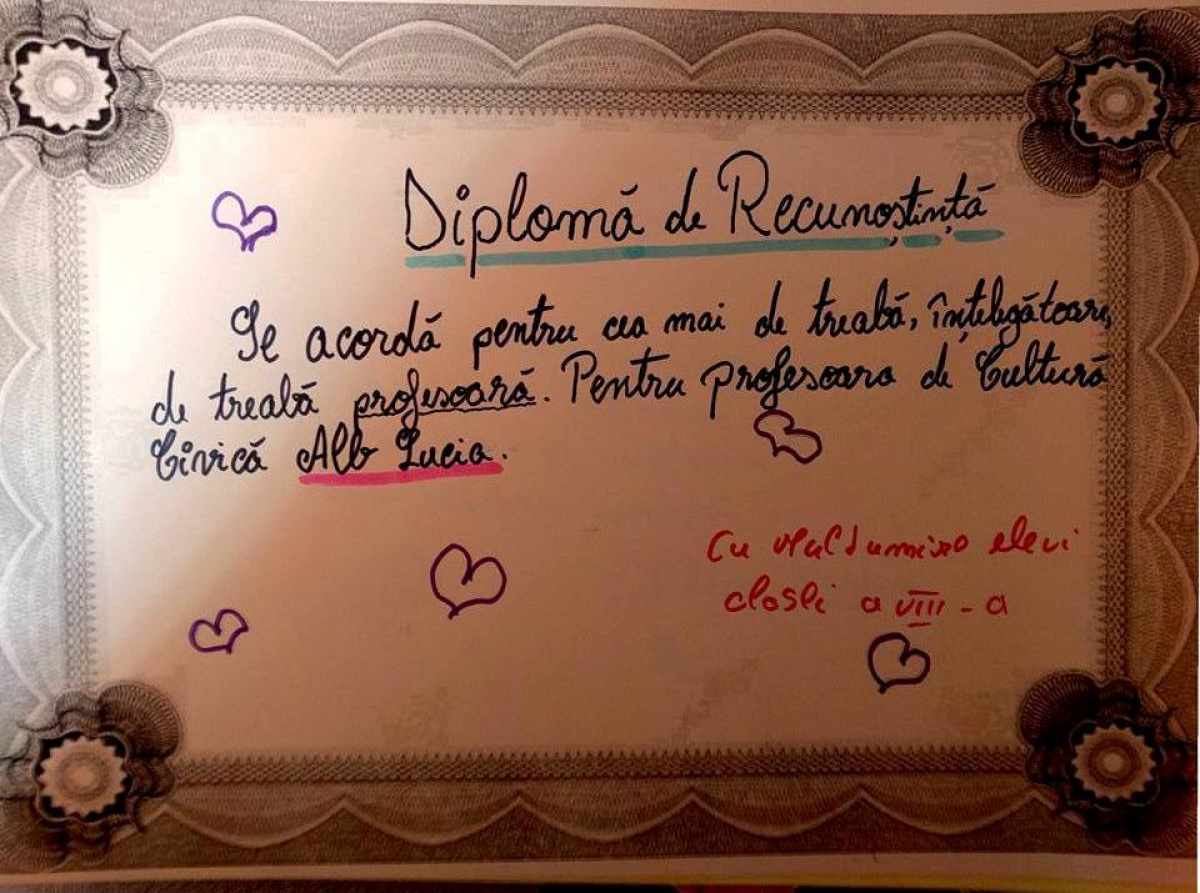 Diplomă de Recunoștință
Se acordă pentru cea mai de treabă, înțelegătoare,
de treabă profesoară. Pentru profesoara de Cultură
Civică Alb Lucia.
Cu elevi
clasei a VIII - a